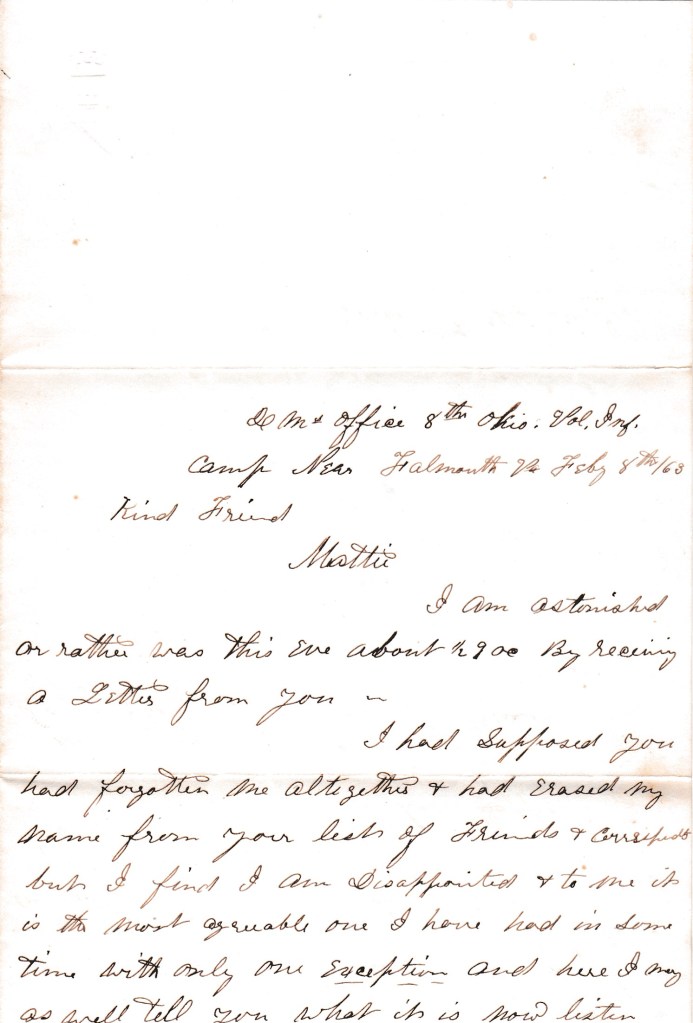 Q M s Office 8th Ohio. Vol, Inf.
Camp Near Falmouth Va Feby 8th/63
Kind Friend
Mattie
I am astonished
or rather was this Eve about ½ 9 oc By receiving
a Letter from you ~
I had Supposed you
had forgotten me altogether & had Erased my
name from your list of Friends & Correspdts
but I find I am Disappointed & to me it
is the most agreeable one I have had in some
time with only one Exception and here I may
as well tell you what it is now listen